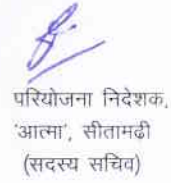 परियोजना निदेशक,
'आत्मा', सीतामढी
(सदस्य सचिव)